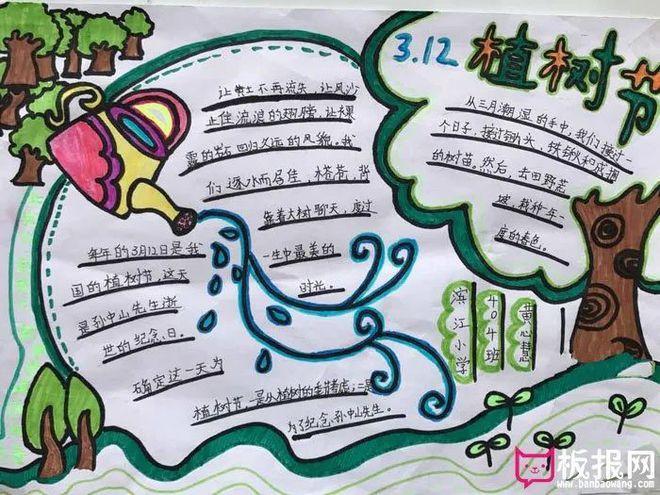 3.12 植树节
从三月潮湿的手中,我们接过一
个日子,接过锄头,铁锹和成捆
的树苗。然后,去田野荒
坡栽种一年一
度的春色。
让黄土不再流失,让风沙
止住流浪的翅膀,让裸
露的岩石回归久远的风貌,我
们逐水而居住,搭苍,背
靠着大树聊天,度过
一生中最美的
时光。
每年的3月12日是我
国的植树节,这天
是孙中山先生逝
世的纪念日。
确定这一天为
植树节,一是从植树的季节考虑;二是
为了纪念孙中山先生。
滨江小学
404班
黄心慧
板报网
www.banbaowang.com